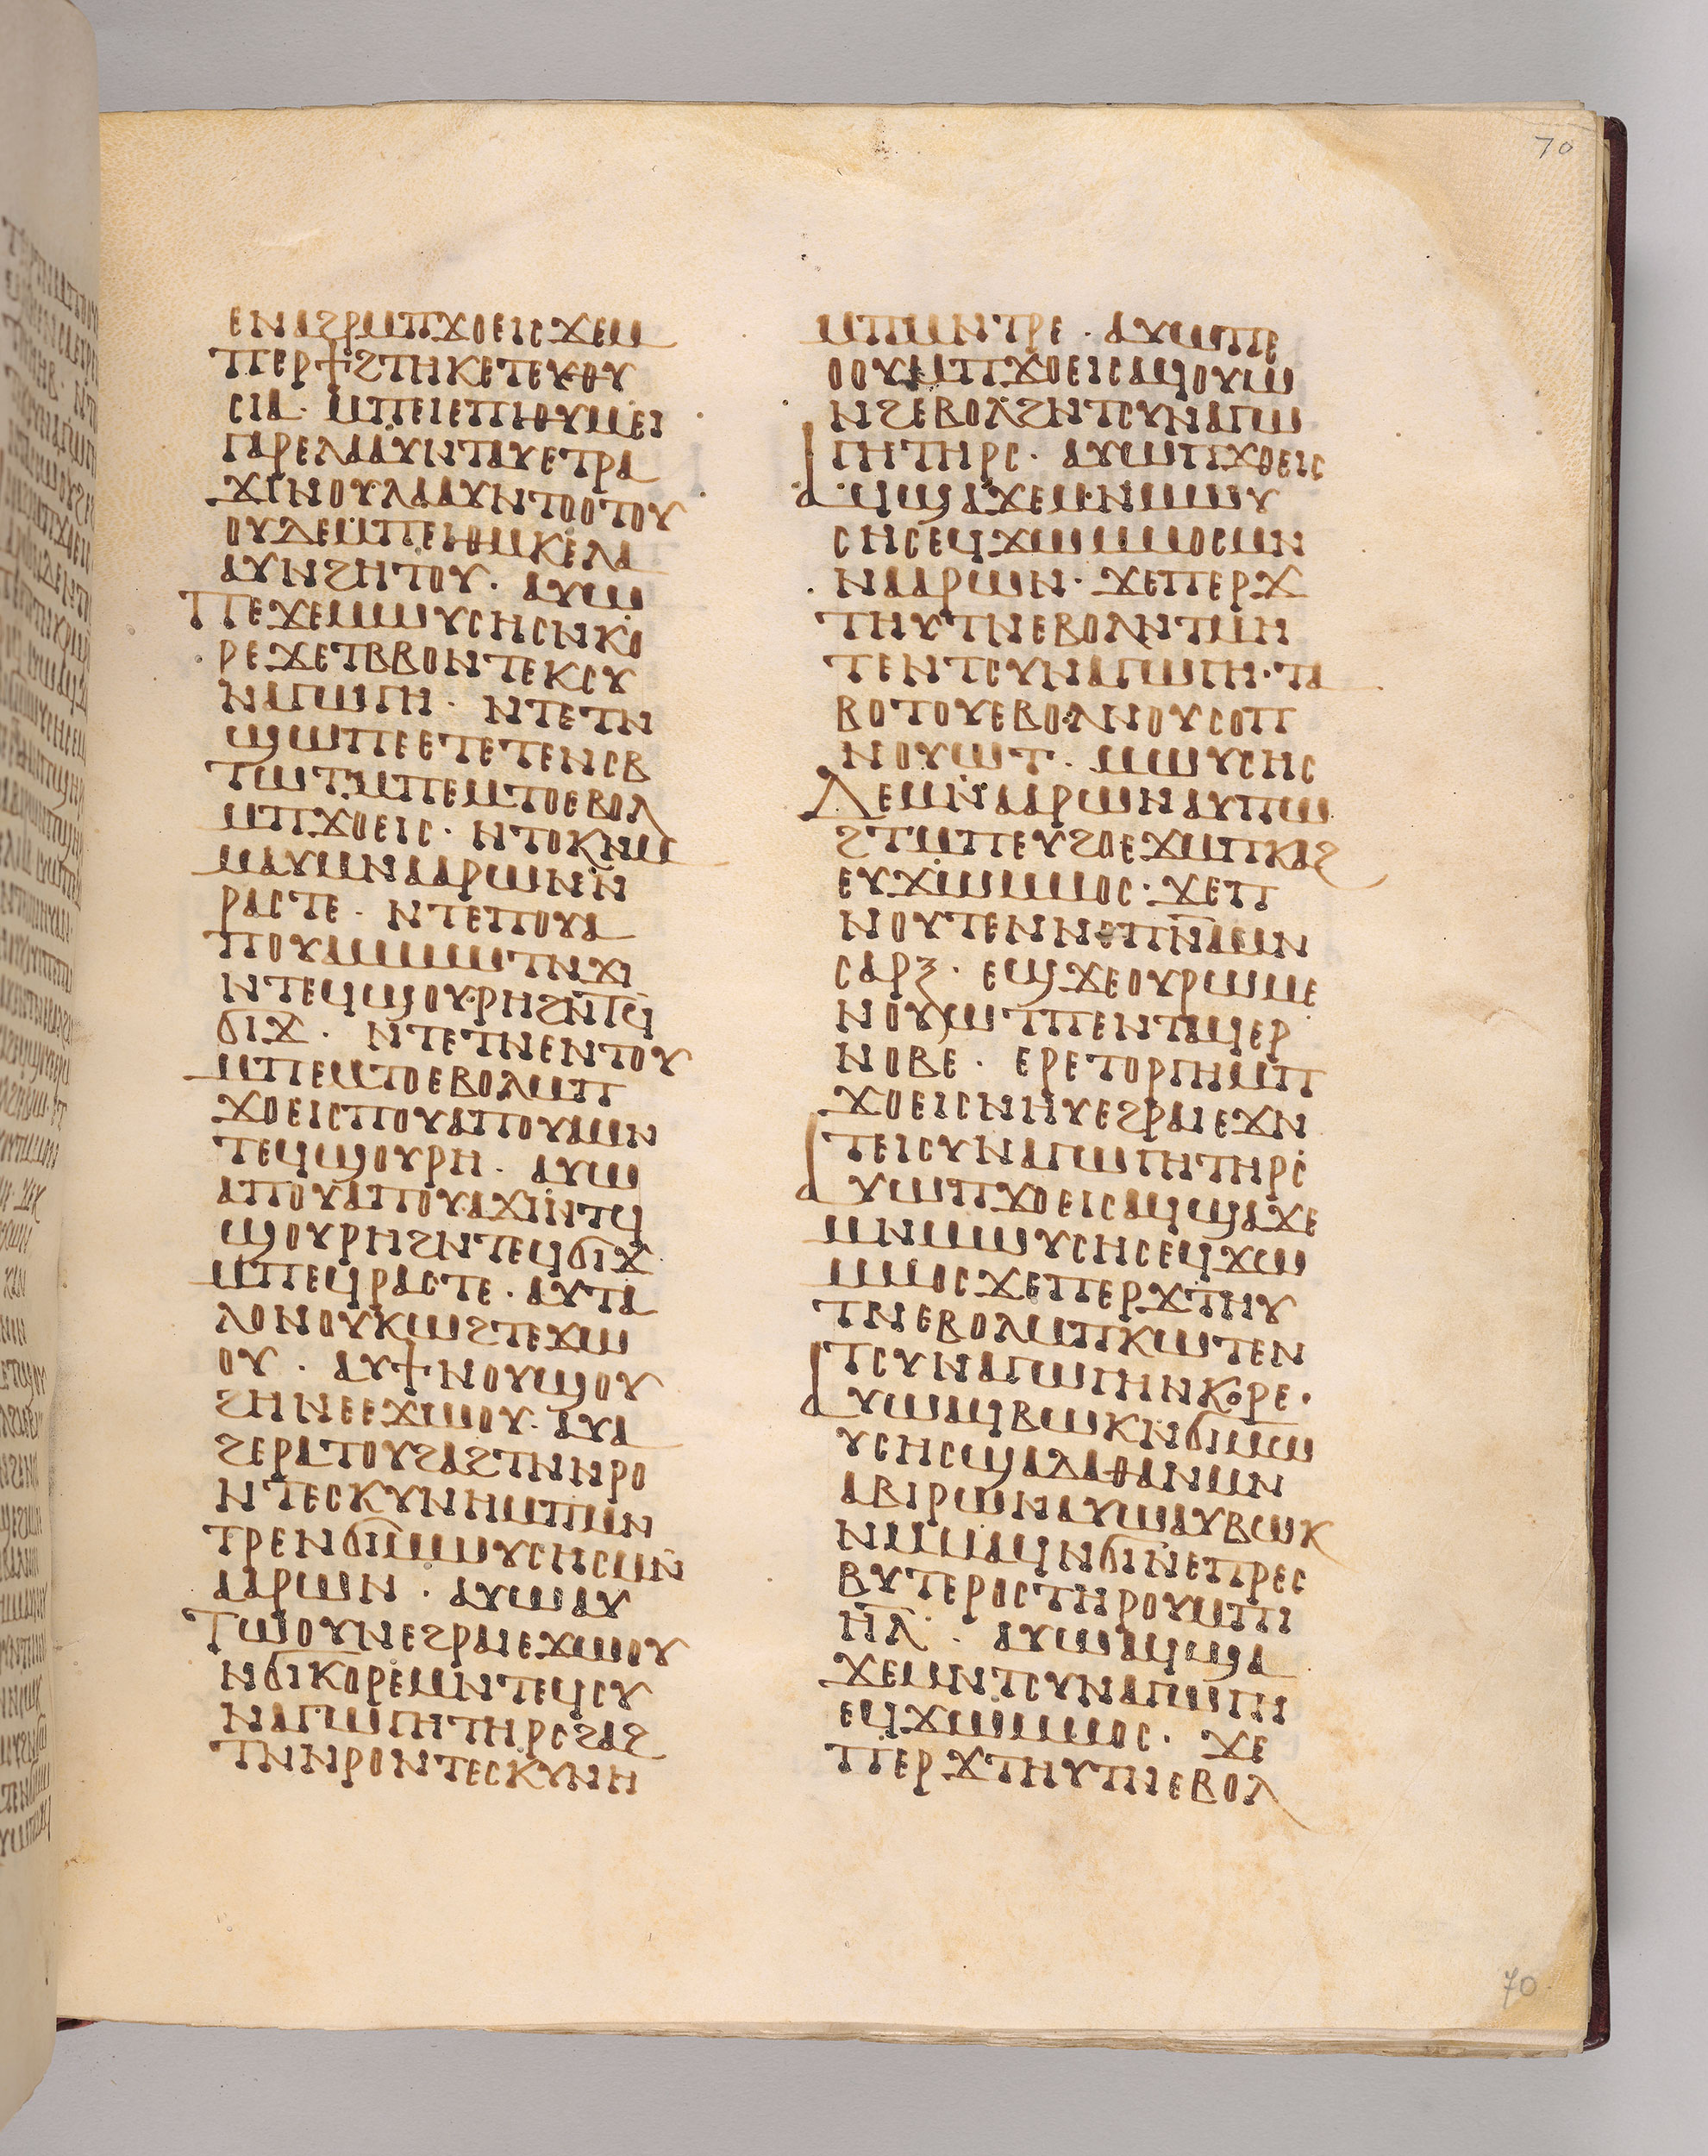 70
ⲉⲛⲁϩⲣⲙⲡϫⲟⲉⲓⲥϫⲉⲙ
ⲡⲉⲣϯϩⲧⲏⲕⲉⲧⲉⲩⲑⲩ
ⲥⲓⲁ· ⲙⲡⲉⲓⲉⲡⲓⲑⲩⲙⲉⲓ
ⲅⲁⲣⲉⲗⲁⲁⲩⲛⲧⲁⲩⲉⲧⲣⲁ
ϫⲓⲛⲟⲩⲗⲁⲁⲩⲛⲧⲟⲟⲧⲟⲩ
ⲟⲩⲇⲉⲙⲡⲉⲓⲑⲙⲕⲉⲗⲁ
ⲁⲩⲛϩⲏⲧⲟⲩ· ⲁⲩⲱ
ⲡⲉϫⲉⲙⲱⲩⲥⲏⲥⲛⲕⲟ
ⲣⲉϫⲉⲧⲃⲃⲟⲛⲧⲉⲕⲥⲩ
ⲛⲁⲅⲱⲅⲏ· ⲛⲧⲉⲧⲛ
ϣⲱⲡⲉⲉⲧⲉⲧⲉⲛⲥⲃ
ⲧⲱⲧ·ⲙⲡⲉⲙⲧⲟⲉⲃⲟⲗ
ⲙⲡϫⲟⲉⲓⲥ· ⲛⲧⲟⲕⲛⲙ
ⲙⲁⲩⲙⲛⲁⲁⲣⲱⲛⲛ
ⲣⲁⲥⲧⲉ· ⲛⲧⲉⲡⲟⲩⲁ
ⲡⲟⲩⲁⲙⲙⲱⲧⲛϫⲓ
ⲛⲧⲉϥϣⲟⲩⲣⲏϩⲛⲧϥ
ϭⲓϫ· ⲛⲧⲉⲧⲛⲉⲛⲧⲟⲩ
ⲙⲡⲉⲙⲧⲟⲉⲃⲟⲗⲙⲡ
ϫⲟⲉⲓⲥⲡⲟⲩⲁⲡⲟⲩⲁⲙⲛ
ⲧⲉϥϣⲟⲩⲣⲏ· ⲁⲩⲱ
ⲁⲡⲟⲩⲁⲡⲟⲩⲁϫⲓⲛⲧϥ
ϣⲟⲩⲣⲏϩⲛⲧⲉϥϭⲓϫ
ⲙⲡⲉϥⲣⲁⲥⲧⲉ· ⲁⲩⲧⲁ
ⲗⲟⲛⲟⲩⲕⲱϩⲧⲉϫⲱ
ⲟⲩ· ⲁⲩϯⲛⲟⲩϣⲟⲩ
ϩⲏⲛⲉⲉϫⲱⲟⲩ·ⲁⲩⲁ
ϩⲉⲣⲁⲧⲟⲩϩⲁϩⲧⲛⲛⲣⲟ
ⲛⲧⲉⲥⲕⲩⲛⲏⲙⲡⲙⲛ
ⲧⲣⲉⲛϭⲓⲙⲱⲩⲥⲏⲥⲙⲛ
ⲁⲁⲣⲱⲛ· ⲁⲩⲱⲁⲩ
ⲧⲱⲟⲩⲛⲉϩⲣⲁⲓⲉϫⲱⲟⲩ
ⲛϭⲓⲕⲟⲣⲉⲙⲛⲧⲉϥⲥⲩ
ⲛⲁⲅⲱⲅⲏⲧⲏⲣⲥϩⲁϩ
ⲧⲛⲛⲣⲟⲛⲧⲉⲥⲕⲩⲛⲏ
ⲙⲡⲙⲛⲧⲣⲉ· ⲁⲩⲱⲡⲉ
ⲟⲟⲩⲙⲡϫⲟⲉⲓⲥⲁϥⲟⲩⲱ
ⲛϩⲉⲃⲟⲗϩⲛⲧⲥⲩⲛⲁⲅⲱ
ⲅⲏⲧⲏⲣⲥ· ⲁⲩⲱⲡϫⲟⲉⲓⲥ
ⲁϥϣⲁϫⲉⲙⲛⲙⲱⲩ
ⲥⲏⲥⲉϥϫⲱⲙⲙⲟⲥⲙⲛ
ⲛⲁⲁⲣⲱⲛ· ϫⲉⲡⲉⲣϫ
ⲧⲏⲩⲧⲛⲉⲃⲟⲗⲛⲧⲙⲏ
ⲧⲉⲛⲧⲥⲩⲛⲁⲅⲱⲅⲏ·ⲧⲁ
ⲃⲟⲧⲟⲩⲉⲃⲟⲗⲛⲟⲩⲥⲟⲡ
ⲛⲟⲩⲱⲧ· ⲙⲱⲩⲥⲏⲥ
ⲇⲉⲙⲛⲁⲁⲣⲱⲛⲁⲩⲡⲱ
ϩⲧⲙⲡⲉⲩϩⲟⲉϫⲙⲡⲕⲁϩ
ⲉⲩϫⲱⲙⲙⲟⲥ· ϫⲉⲡ
ⲛⲟⲩⲧⲉⲛⲛⲉⲡⲛ̅ⲁⲙⲛ
ⲥⲁⲣⲝ· ⲉϣϫⲉⲟⲩⲣⲱⲙⲉ
ⲛⲟⲩⲱⲧⲡⲉⲛⲧⲁϥⲉⲣ
ⲛⲟⲃⲉ· ⲉⲣⲉⲧⲟⲣⲅⲏⲙⲡ
ϫⲟⲉⲓⲥⲛⲏⲩⲉϩⲣⲁⲓⲉϫⲛ
ⲧⲉⲓⲥⲩⲛⲁⲅⲱⲅⲏⲧⲏⲣⲥ
ⲁⲩⲱⲡϫⲟⲉⲓⲥⲁϥϣⲁϫⲉ
ⲙⲛⲙⲱⲩⲥⲏⲥⲉϥϫⲱ
ⲙⲙⲟⲥϫⲉⲡⲉⲣϫⲧⲏⲩ
ⲧⲛⲉⲃⲟⲗⲙⲡⲕⲱⲧⲉⲛ
ⲧⲥⲩⲛⲁⲅⲱⲅⲏⲛⲕⲟⲣⲉ·
ⲁⲩⲱⲁϥⲃⲱⲕⲛϭⲓⲙⲱ
ⲩⲥⲏⲥϣⲁⲇⲁⲑⲁⲛⲙⲛ
ⲁⲃⲓⲣⲱⲛⲁⲩⲱⲁⲩⲃⲱⲕ
ⲛⲙⲙⲁϥⲛϭⲓⲛⲉⲡⲣⲉⲥ
ⲃⲩⲧⲉⲣⲟⲥⲧⲏⲣⲟⲩⲙⲡⲓ
ⲏ̅ⲗ̅· ⲁⲩⲱⲁϥϣⲁ
ϫⲉⲙⲛⲧⲥⲩⲛⲁⲅⲱⲅⲏ
ⲉϥϫⲱⲙⲙⲟⲥ· ϫⲉ
ⲡⲉⲣϫⲧⲏⲩⲧⲛⲉⲃⲟⲗ
70